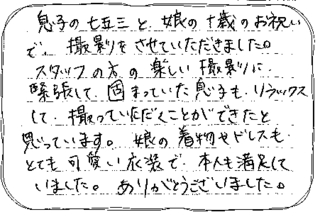 息子の七五三と、娘の十歳のお祝い
で、撮影をさせていただきました。
スタッフの方の楽しい撮影に
緊張して、固まっていた息子も、リラックス
して、撮っていただくことができたと
思っています。娘の着物やドレスも
とても可愛い衣装で、本人も満足して
いました。ありがとうございました。